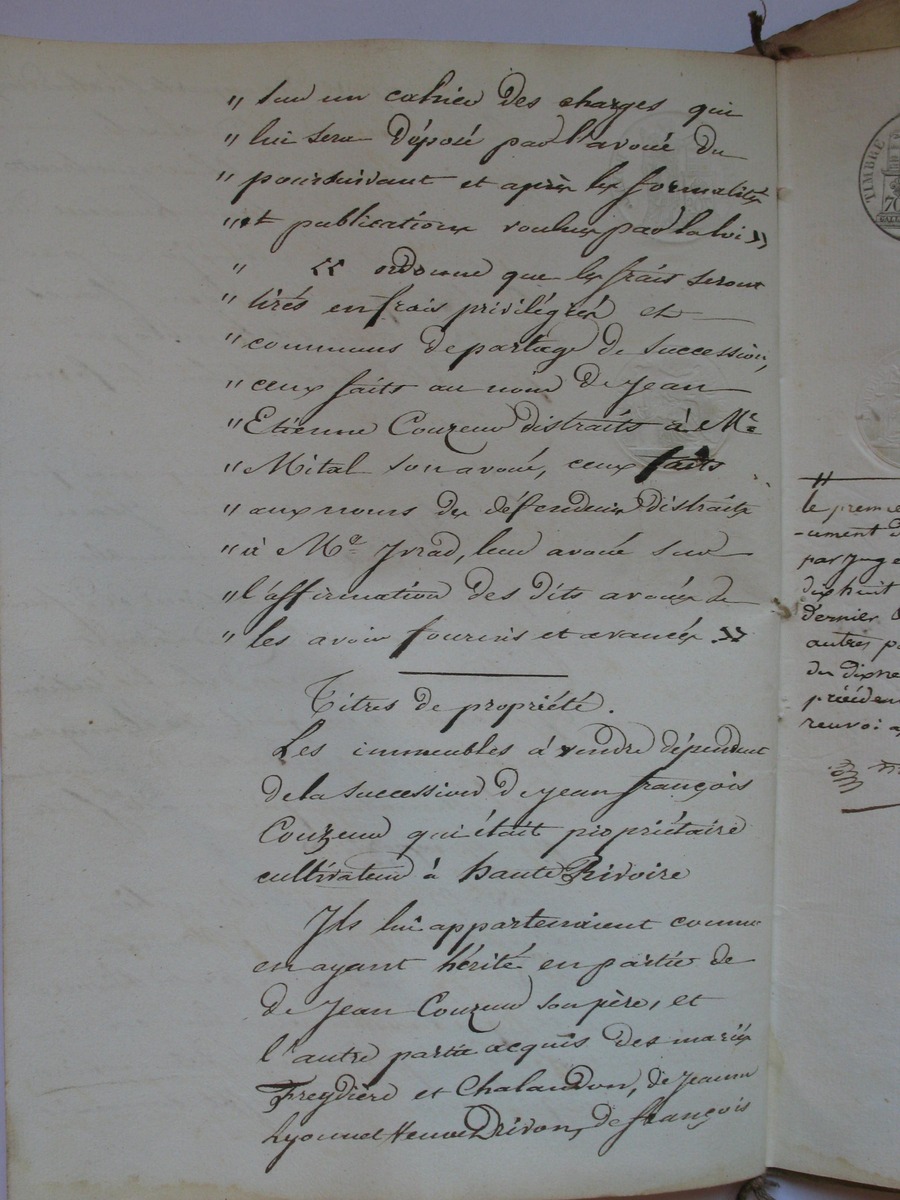 " Sur un cahier des charges qui
" lui sera déposé par l'avoué du
" poursuivant et après les formalités
" et publications voulues par la loi »
" « ordonne que les frais seront
" tirés en frais privilégiés et
" communs de partage de succession,
" ceux faits au nom de Jean
" Etienne Couzeur distraits à Me
" Mital son avoué, ceux faits
" aux noms des défendeurs distraits
" à Me Yvrad, leur avoué sur
" l'affirmation des dits avoués de
" les avoir fournis et avancés. »
Titres de propriété.
Les immeubles à vendre dépendent
de la succession de Jean françois
Couzeur qui était propriétaire
cultivateur à haute Rivoire
Ils lui appartenaient comme
en ayant hérité en partie de
de Jean Couzeur son père, et
l'autre partie acquis des mariés
Freydière et Chalandon, de Jeanne
Lyonnet Veuve Drivon, de françois
TIMBRE
70
le premie
-cument d
par Juge
dix huit
dernier
autres p
du dixne
précéden
renvoi a